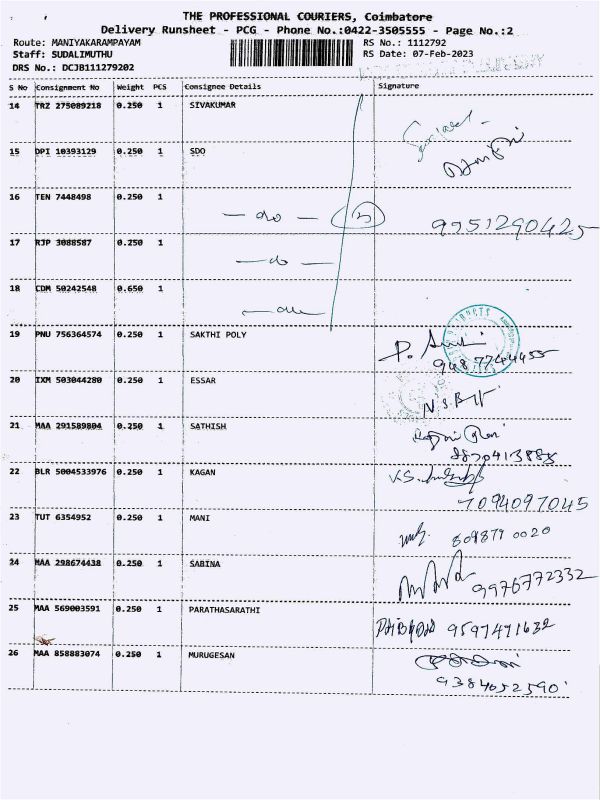 THE PROFESSIONAL COURIERS, Coimbatore
Delivery Runsheet - PCG - Phone No.:0422-3505555 - Page No.:2
Route: MANIYAKARAMPAYAM RS No.: 1112792
Staff: SUDALIMUTHU RS Date: 07-Feb-2023
DRS No.: DCJB111279202
S No Consignment No Weight PCS Consignee Details Signature
14 TRZ 275089218 0.250 1 SIVAKUMAR
15 DPI 10393129 0.250 1 SDO
16 TEN 7448498 0.250 1
— do — 5 9951290425
17 RJP 3088587 0.250 1
— do —
18 CDM 50242548 0.650 1
— do —
19 PNU 756364574 0.250 1 SAKTHI POLY
9487744455
20 IXM 503044280 0.250 1 ESSAR
21 MAA 291589804 0.250 1 SATHISH
22 BLR 5004533976 0.250 1 KAGAN
7094097045
23 TUT 6354952 0.250 1 MANI
809879 0020
24 MAA 298674438 0.250 1 SABINA
9976772332
25 MAA 569003591 0.250 1 PARATHASARATHI
9597471632
26 MAA 858883074 0.250 1 MURUGESAN
9384052590